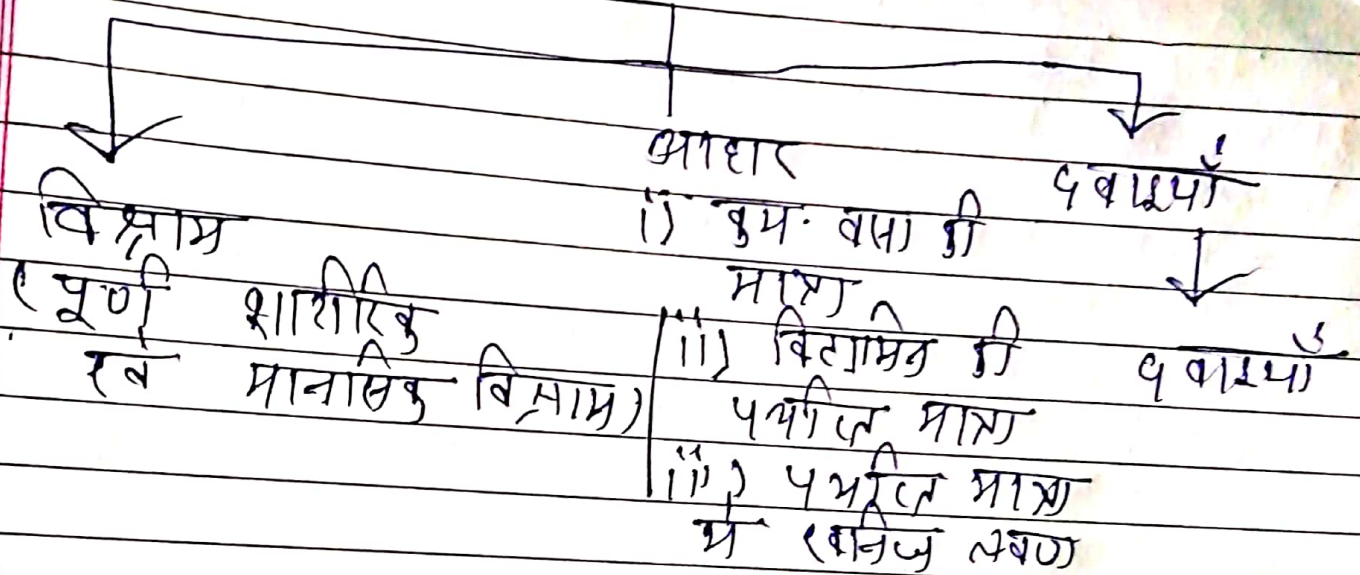 विश्राम
(पूर्ण शारीरिक
एवं मानसिक विश्राम)
आहार
i) कम वसा की
मात्रा
ii) विटामिन की
पर्याप्त मात्रा
iii) पर्याप्त मात्रा
में खनिज लवण
दवाइयाँ
दवाइयाँ